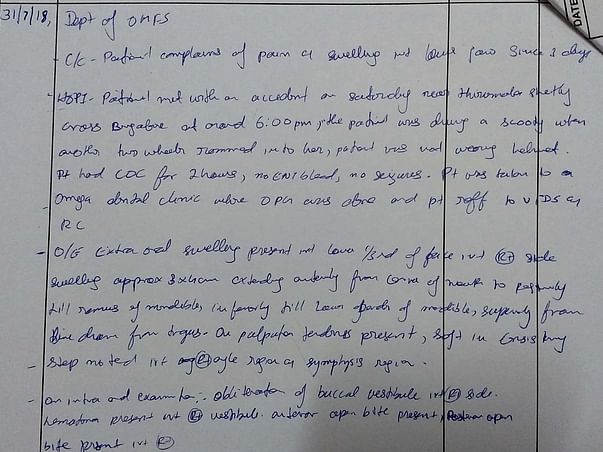 31/7/18, Dept of OMFS
DATE
- C/C - Patient complains of pain & swelling irt lower jaw since 3 days
- HOPI - Patient met with an accident on saturday near
cross at around 6:00 pm, the patient was driving a scooty when
another two wheeler rammed into her, patient was not wearing helmet.
Pt had LOC for 2 hours, no ENT bleed, no seizures. Pt was taken to a
- Omega dental clinic where OPG was done and pt reff to VIDS as
RC
- O/E Extra oral swelling present irt lower 1/3rd of face irt Rt side
swelling approx 3x4cm extending anteriorly from corner of mouth to posteriorly
till ramus of mandible, inferiorly till lower border of mandible, superiorly from
line drawn from tragus. On palpation tenderness present, soft in consistency
- step noted irt Rt angle region & symphysis region.
- on intra oral examination:- obliteration of buccal vestibule irt Rt side.
hematoma present irt Rt vestibule. anterior open bite present, Posterior open
bite present irt Rt